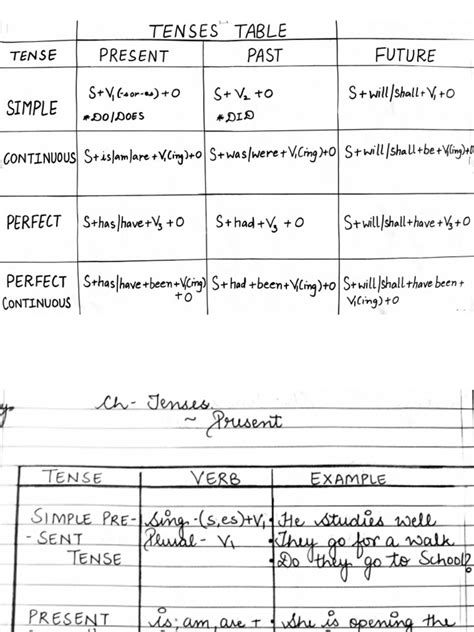 TENSES TABLE
TENSE PRESENT PAST FUTURE
SIMPLE S+V₁(-s or -es)+O S+V₂+O S+will/shall+V₁+O
*DO/DOES *DID
CONTINUOUS S+is/am/are+V₁(ing)+O S+was/were+V₁(ing)+O S+will/shall+be+V₁(ing)+O
PERFECT S+has/have+V₃+O S+had+V₃+O S+will/shall+have+V₃+O
PERFECT CONTINUOUS S+has/have+been+V₁(ing)+O S+had+been+V₁(ing)+O S+will/shall+have been+V₁(ing)+O
Ch- Tenses.
~ Present
TENSE VERB EXAMPLE
SIMPLE PRE- Sing.-(s,es)+V₁ • He studies well
-SENT Plural- V₁ • They go for a walk
TENSE • Do they go to School?
PRESENT is, am, are + • She is opening the